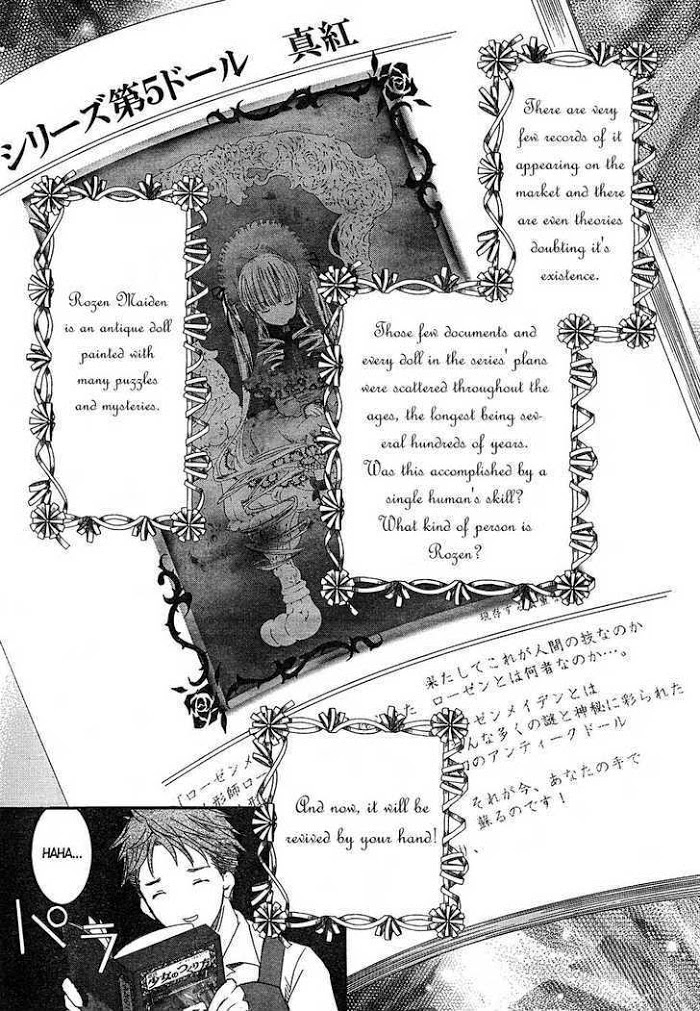 シリーズ第5ドール 真紅
There are very
few records of it
appearing on the
market and there
are even theories
doubting it's
existence.
Rozen Maiden
is an antique doll
painted with
many puzzles
and mysteries.
Those few documents and
every doll in the series' plans
were scattered throughout the
ages, the longest being sev-
eral hundreds of years.
Was this accomplished by a
single human's skill?
What kind of person is
Rozen?
現存する
果たしてこれが人間の技なのか
ローゼンとは何者なのか…。
ゼンメイデンとは
んな多くの謎と神秘に彩られた
のアンティークドール
それが今、あなたの手で
蘇るのです!
「ローゼンメ
形師ロー
And now, it will be
revived by your hand!
HAHA...
パラ
少女のつくり方